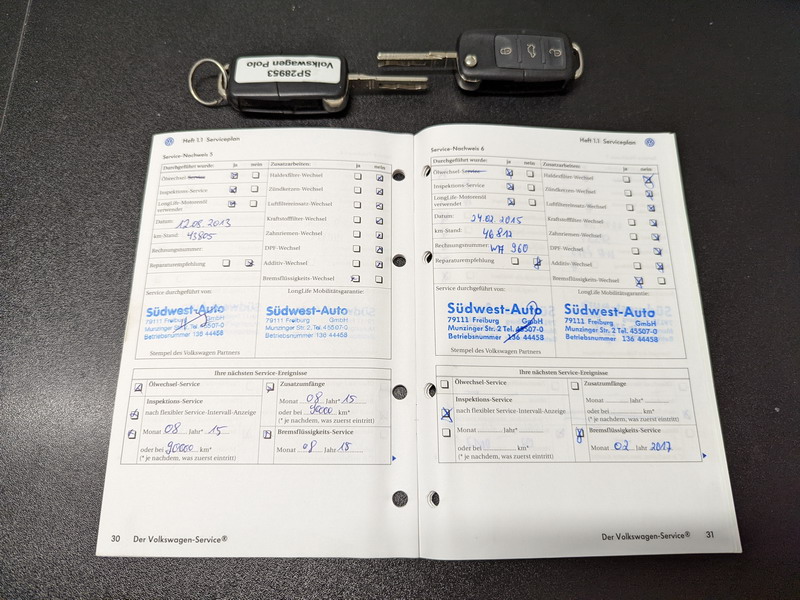 SP28953
Volkswagen Polo
Heft 1.1 Serviceplan
Service-Nachweis 5
Durchgeführt wurde: ja nein
Ölwechsel-Service
Inspektions-Service
LongLife-Motorenöl
verwendet
Datum: 12.08.2013
km-Stand: 43805
Rechnungsnummer:
Reparaturempfehlung
Zusatzarbeiten: ja nein
Haldexfilter-Wechsel
Zündkerzen-Wechsel
Luftfiltereinsatz-Wechsel
Kraftstofffilter-Wechsel
Zahnriemen-Wechsel
DPF-Wechsel
Additiv-Wechsel
Bremsflüssigkeits-Wechsel
Service durchgeführt von:
Südwest-Auto
79111 Freiburg GmbH
Munzinger Str. 2, Tel. 45507-0
Betriebsnummer 136 44458
Stempel des Volkswagen Partners
LongLife Mobilitätsgarantie:
Südwest-Auto
79111 Freiburg GmbH
Munzinger Str. 2, Tel. 45507-0
Betriebsnummer 136 44458
Ihre nächsten Service-Ereignisse
Ölwechsel-Service
Inspektions-Service
nach flexibler Service-Intervall-Anzeige
Monat 08 Jahr* 15
oder bei 90000 km*
(* je nachdem, was zuerst eintritt)
Zusatzumfänge
Monat 08 Jahr* 15
oder bei 90000 km*
(* je nachdem, was zuerst eintritt)
Bremsflüssigkeits-Service
Monat 08 Jahr 15
30 Der Volkswagen-Service®
Heft 1.1 Serviceplan
Service-Nachweis 6
Durchgeführt wurde: ja nein
Ölwechsel-Service
Inspektions-Service
LongLife-Motorenöl
verwendet
Datum: 24.02.2015
km-Stand: 46812
Rechnungsnummer: WA 960
Reparaturempfehlung
Zusatzarbeiten: ja nein
Haldexfilter-Wechsel
Zündkerzen-Wechsel
Luftfiltereinsatz-Wechsel
Kraftstofffilter-Wechsel
Zahnriemen-Wechsel
DPF-Wechsel
Additiv-Wechsel
Bremsflüssigkeits-Wechsel
Service durchgeführt von:
Südwest-Auto
79111 Freiburg GmbH
Munzinger Str. 2 Tel. 45507-0
Betriebsnummer 136 44458
Stempel des Volkswagen Partners
LongLife Mobilitätsgarantie:
Südwest-Auto
79111 Freiburg GmbH
Munzinger Str. 2, Tel. 45507-0
Betriebsnummer 136 44458
Ihre nächsten Service-Ereignisse
Ölwechsel-Service
Inspektions-Service
nach flexibler Service-Intervall-Anzeige
Monat Jahr*
oder bei km*
(* je nachdem, was zuerst eintritt)
Zusatzumfänge
Monat Jahr*
oder bei km*
(* je nachdem, was zuerst eintritt)
Bremsflüssigkeits-Service
Monat 02 Jahr 2017
Der Volkswagen-Service® 31